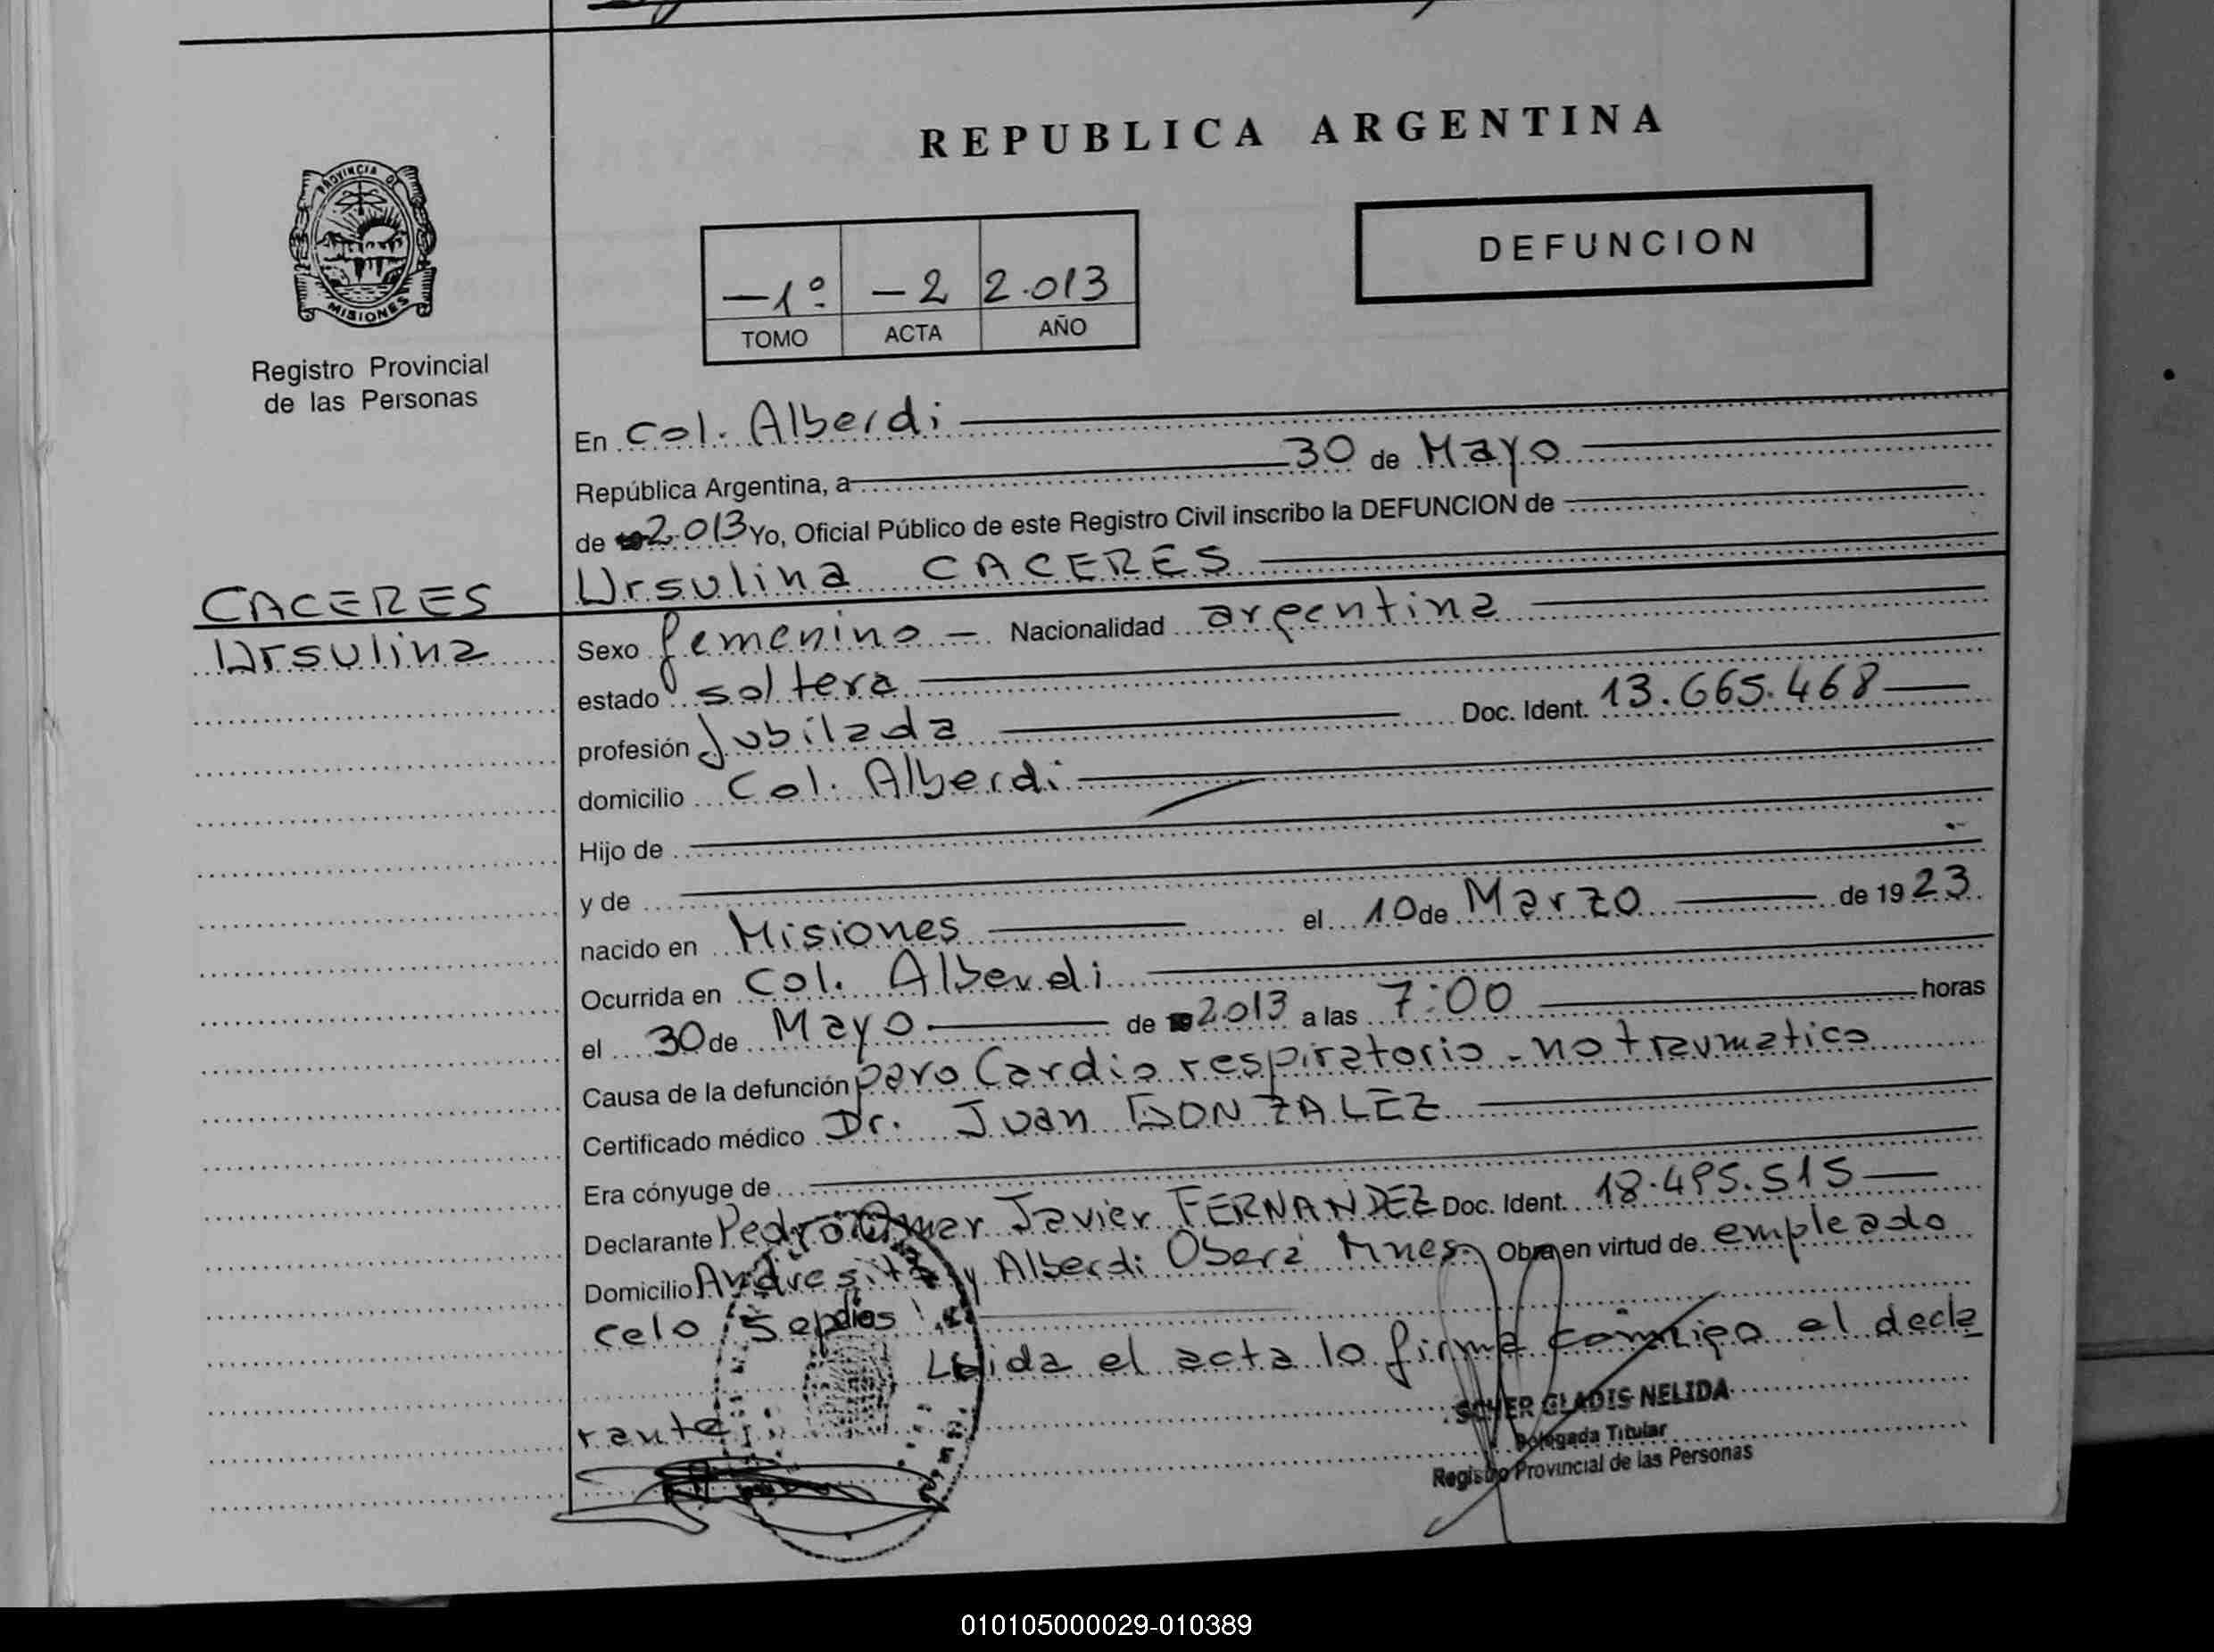 REPUBLICA ARGENTINA
PROVINCIA DE
MISIONES
Registro Provincial
de las Personas
DEFUNCION
-1º -2 2.013
TOMO ACTA AÑO
En Col. Alberdi
República Argentina, a 30 de Mayo
de 2.013 Yo, Oficial Público de este Registro Civil inscribo la DEFUNCION de
Ursulina CACERES
CACERES
Ursulina
Sexo femenino - Nacionalidad argentina
estado soltera
profesión Jubilada Doc. Ident. 13.665.468
domicilio Col. Alberdi
Hijo de
y de
nacido en Misiones el 10 de Marzo de 1923
Ocurrida en Col. Alberdi
el 30 de Mayo de 2.013 a las 7:00 horas
Causa de la defunción paro Cardio respiratorio - no traumatico
Certificado médico Dr. Juan GONZALEZ
Era cónyuge de
Declarante Pedro Omar Javier FERNANDEZ Doc. Ident. 18.495.515
Domicilio Andresito y Alberdi Oberá Mnes. Obra en virtud de empleado
celo Sepelios
Leida el acta lo firma conmigo el decla
rante
SCHER GLADIS NELIDA
Delegada Titular
Registro Provincial de las Personas
010105000029-010389